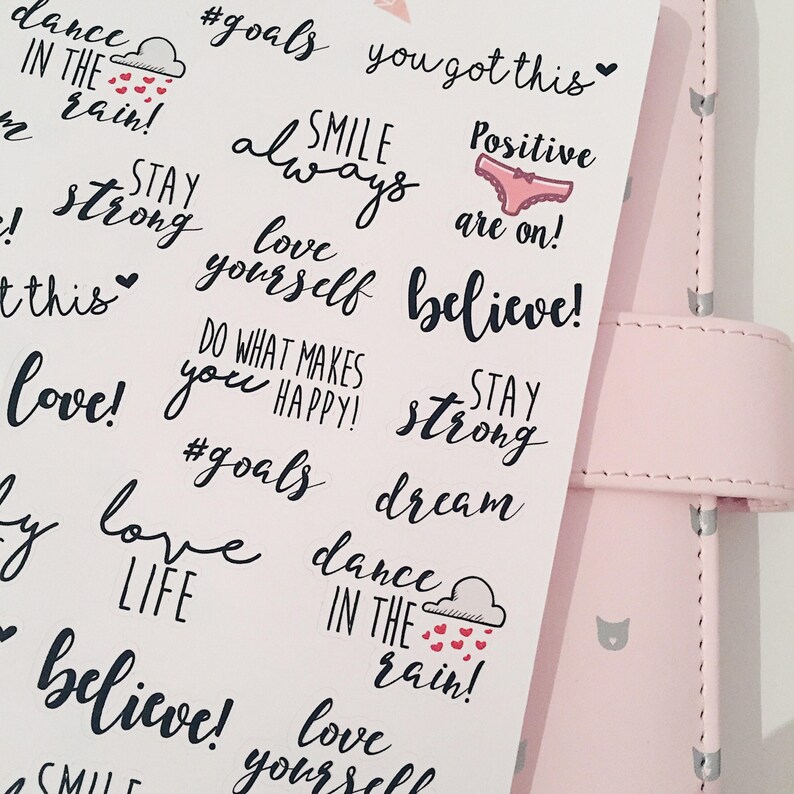 dance
IN THE
rain!
#goals
you got this
SMILE
always
Positive
are on!
STAY
strong
love
yourself
believe!
t this
DO WHAT MAKES
you HAPPY!
love!
STAY
strong
#goals
dream
love
LIFE
dance
IN THE
rain!
believe!
love
yourself
SMILE